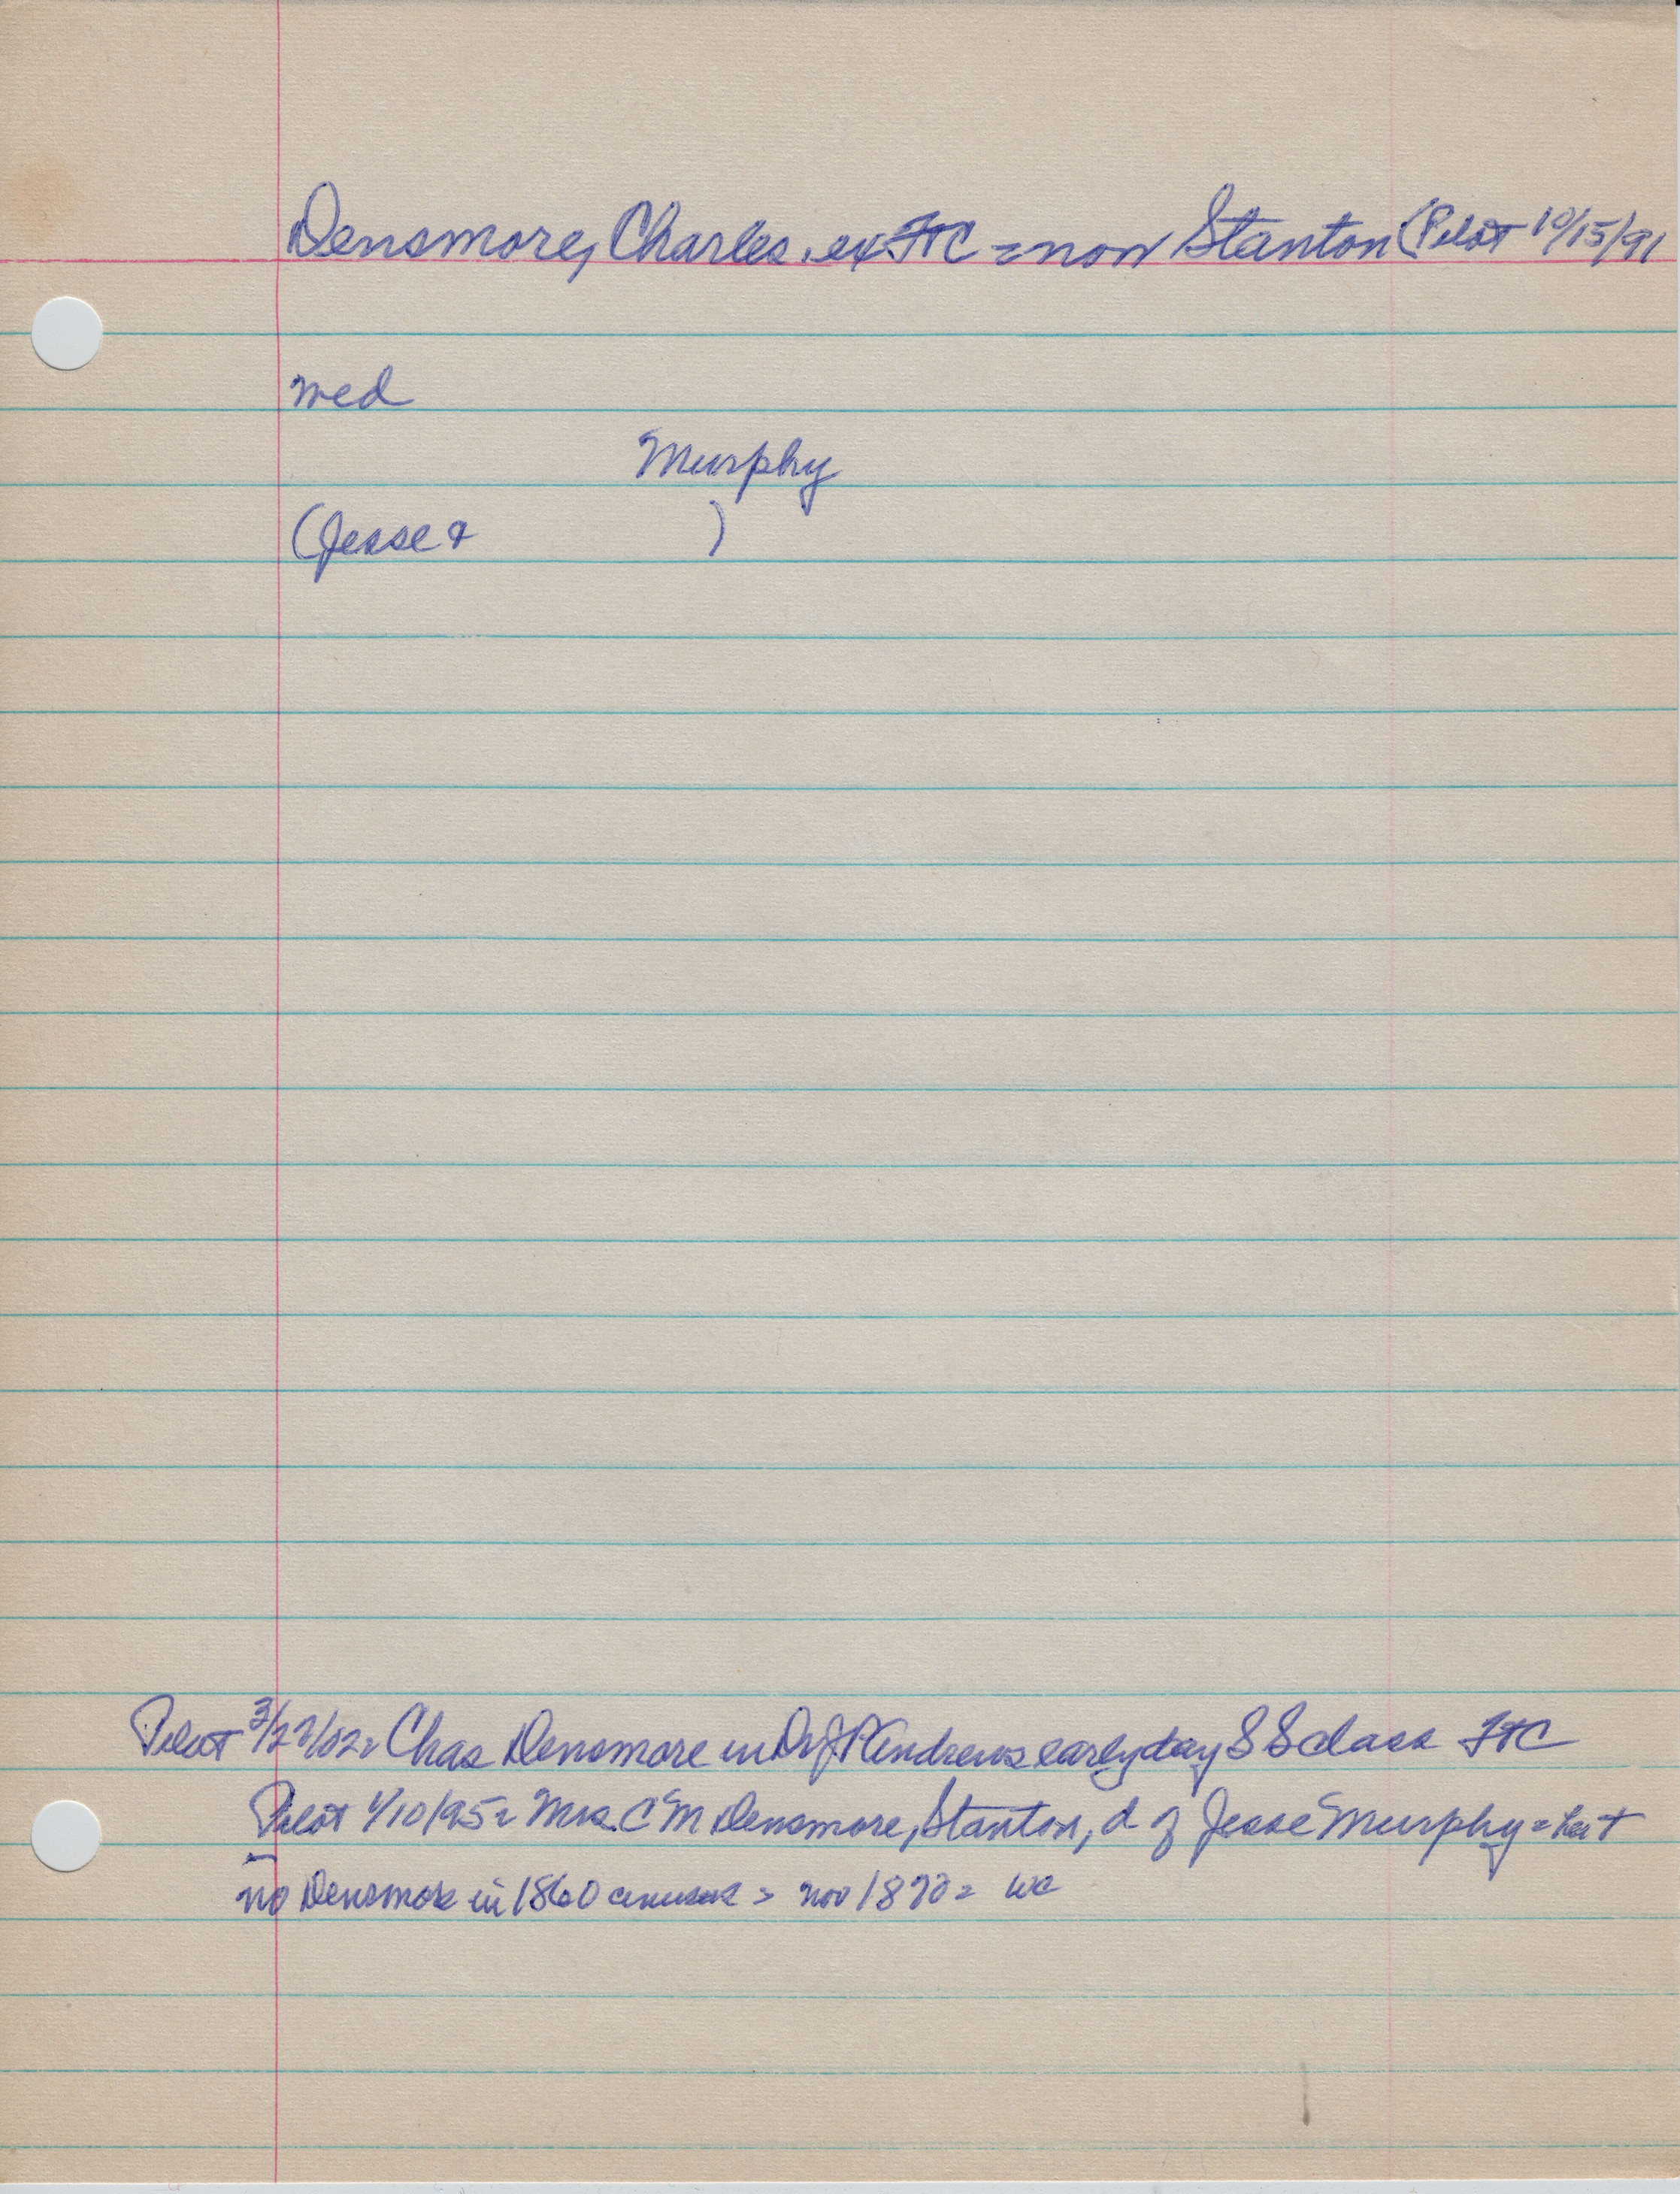 Densmore, Charles, ex FtC = now Stanton (Pilot 10/15/91
wed
Murphy
(Jesse & )
Pilot 3/27/02= Chas Densmore in Dr J P Andrews early day S S class FtC
Pilot 1/10/95= Mrs C M Densmore, Stanton, d of Jesse Murphy =
no Densmore in 1860 census = nor 1870 = WC